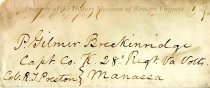 Property of the History Museum of Western Virginia
P. Gilmer Breckinridge
Capt Co. K. 28th Regt Va Vols.
Col. R. T. Preston } Manassa